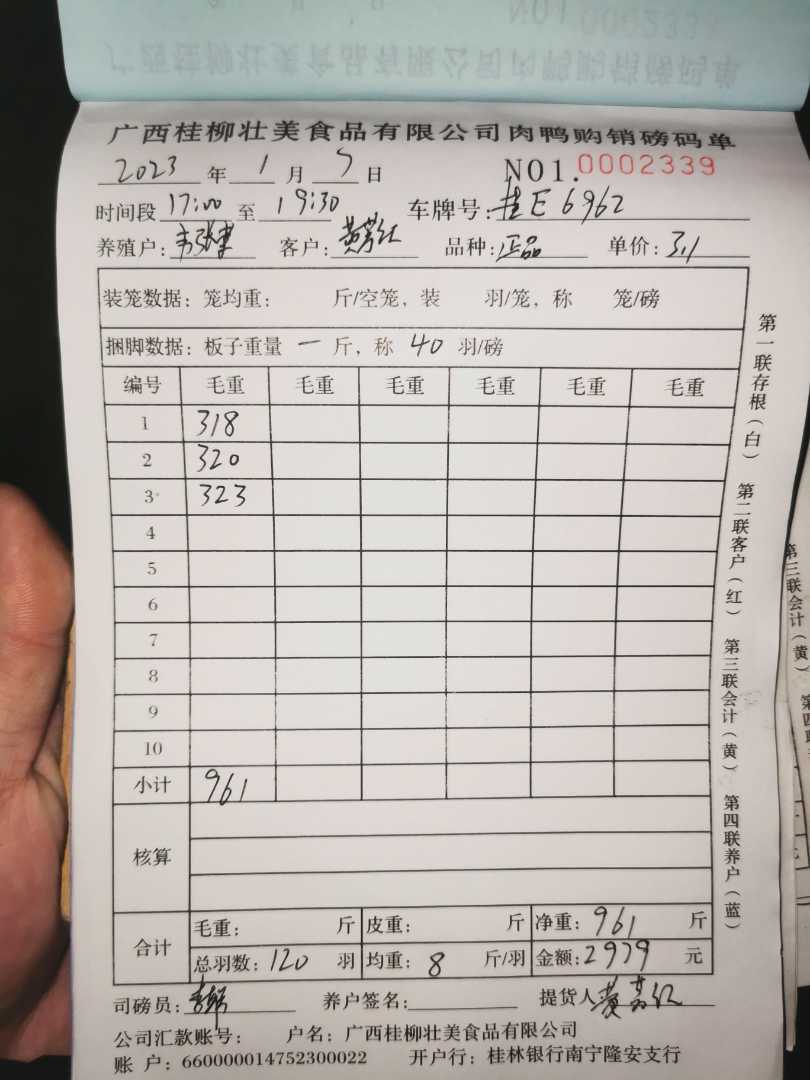 广西桂柳壮美食品有限公司肉鸭购销磅码单
2023年1月5日 NO1.0002339
时间段17:00至19:30 车牌号:桂E6962
养殖户: 客户:黄芳红 品种:正品 单价:3.1
装笼数据:笼均重: 斤/空笼,装 羽/笼,称 笼/磅
捆脚数据:板子重量 一 斤,称 40 羽/磅
编号 毛重 毛重 毛重 毛重 毛重 毛重
1 318
2 320
3 323
4
5
6
7
8
9
10
小计 961
核算
合计
毛重: 斤 皮重: 斤 净重:961 斤
总羽数:120 羽 均重:8 斤/羽 金额:2979 元
司磅员: 养户签名: 提货人黄芳红
公司汇款账号: 户名:广西桂柳壮美食品有限公司
账 户:660000014752300022 开户行:桂林银行南宁隆安支行
第一联存根(白) 第二联客户(红) 第三联会计(黄) 第四联养户(蓝)
第三联会计(黄)